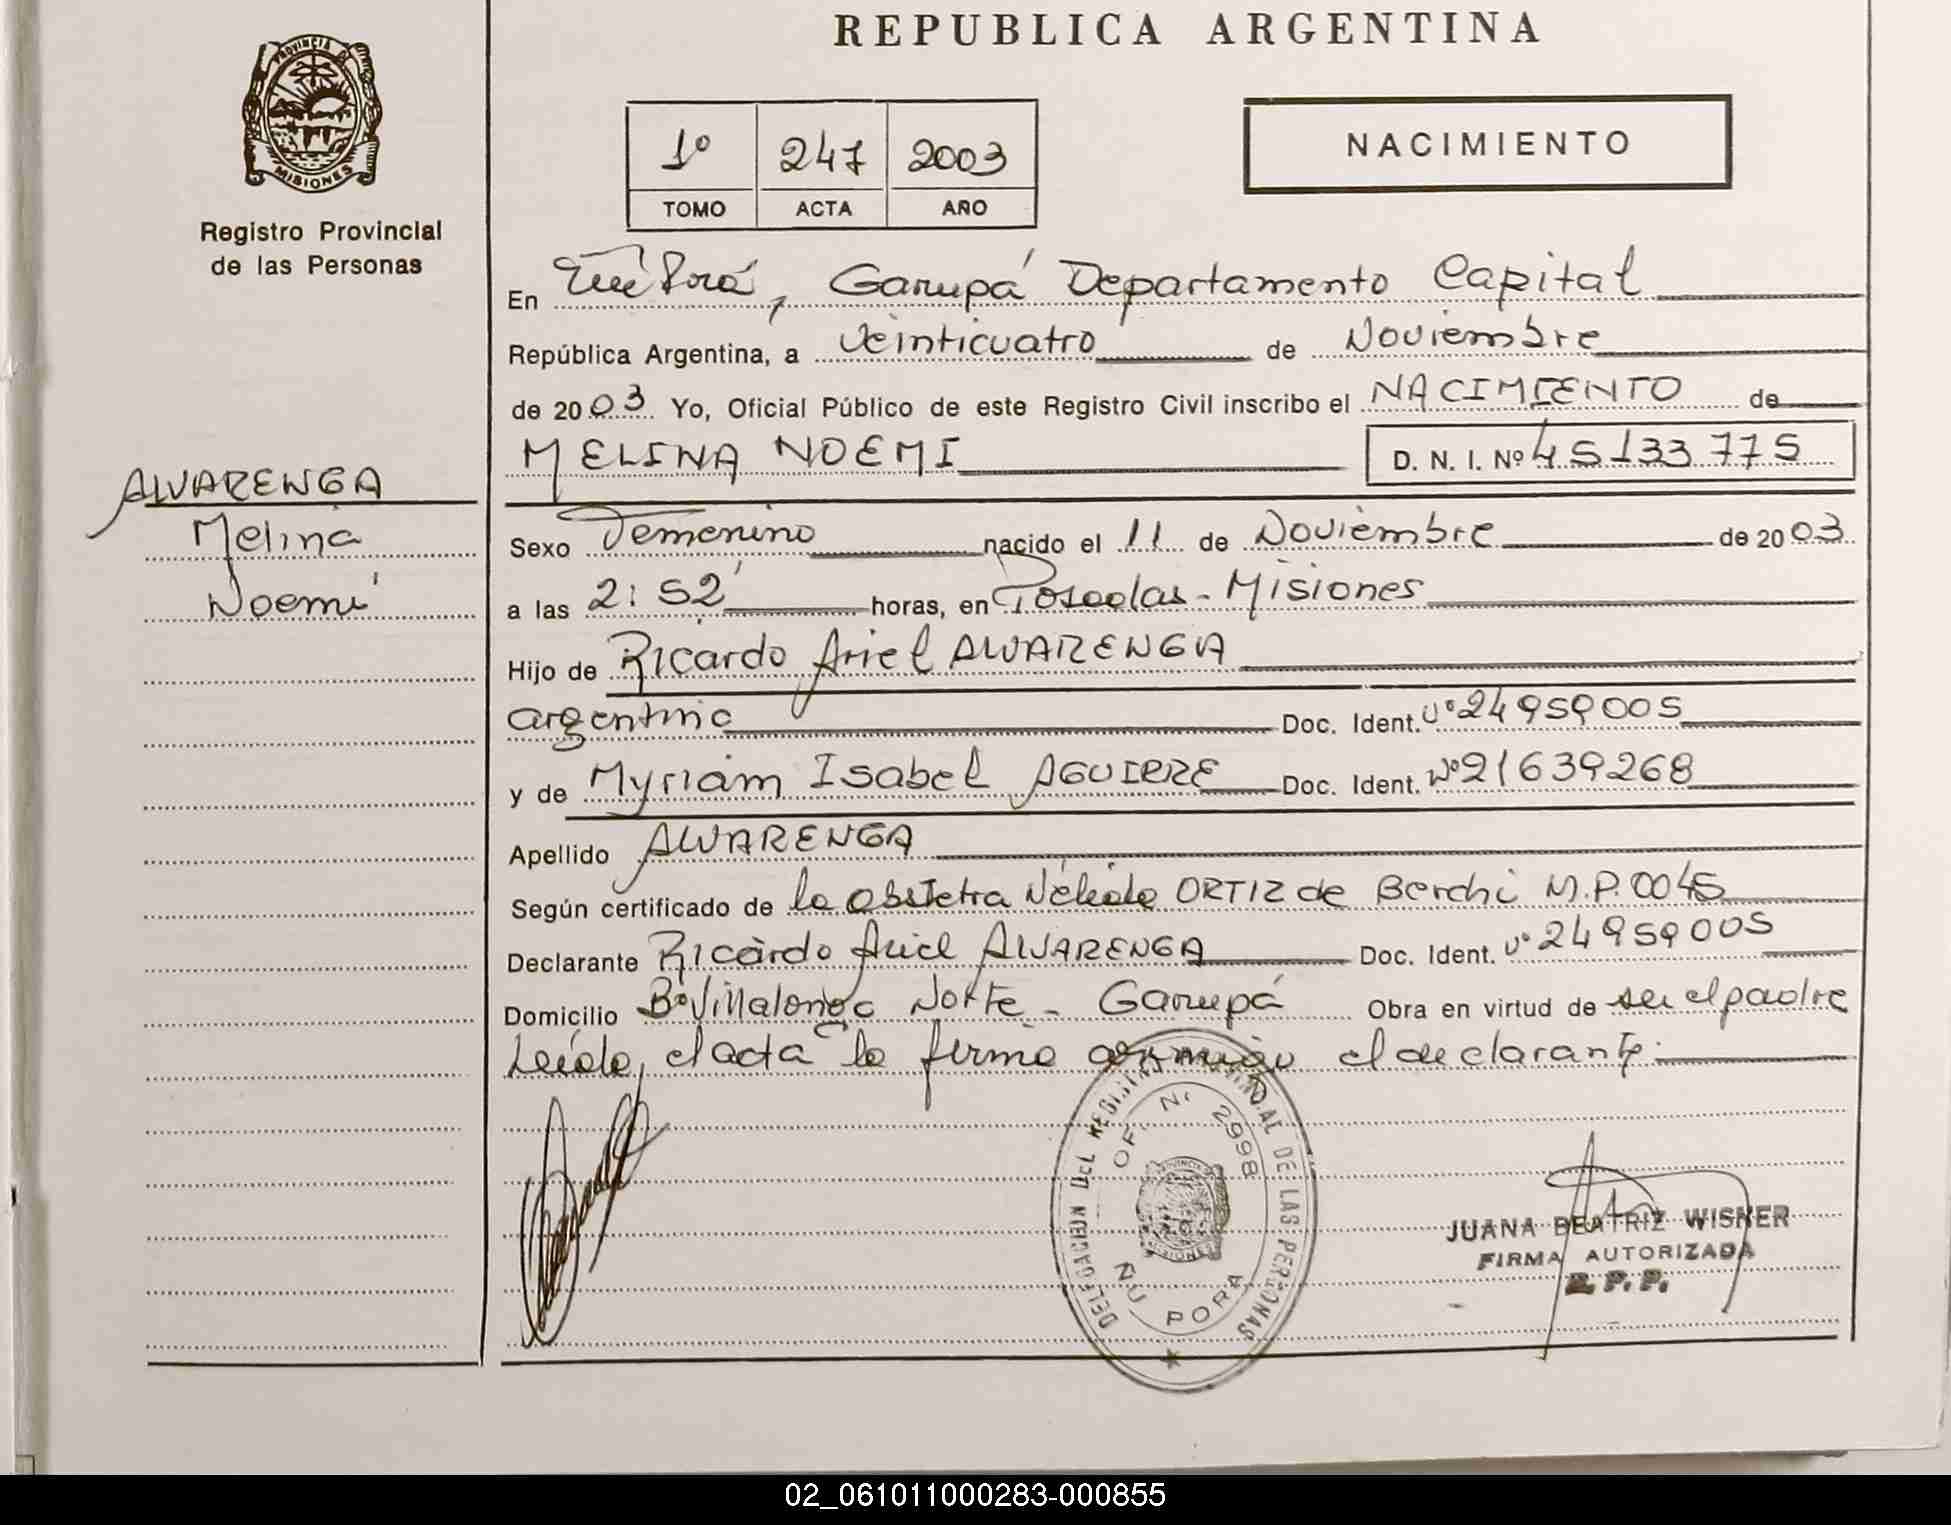 REPUBLICA ARGENTINA
PROVINCIA DE
MISIONES
Registro Provincial
de las Personas
1º 247 2003
TOMO ACTA AÑO
NACIMIENTO
En Ñu Porá, Garupá Departamento Capital
República Argentina, a Veinticuatro de Noviembre
de 2003 Yo, Oficial Público de este Registro Civil inscribo el NACIMIENTO de
MELINA NOEMI D. N. I. Nº 45133775
ALVARENGA
Melina
Noemí
Sexo Femenino nacido el 11 de Noviembre de 2003
a las 2:52' horas, en Posadas - Misiones
Hijo de Ricardo Ariel ALVARENGA
argentino Doc. Ident. Nº 24959005
y de Myriam Isabel AGUIRRE Doc. Ident. Nº 21639268
Apellido ALVARENGA
Según certificado de la obstetra Nélida ORTIZ de Berchi M.P. 0045
Declarante Ricardo Ariel ALVARENGA Doc. Ident. Nº 24959005
Domicilio Bº Villalonga Norte - Garupá Obra en virtud de ser el padre
Leída el acta la firma conmigo el declarante.
DELEGACION DEL REGISTRO PROVINCIAL DE LAS PERSONAS
OF. Nº 2998
ÑU PORA
JUANA BEATRIZ WISNER
FIRMA AUTORIZADA
R. P. P.
02_061011000283-000855